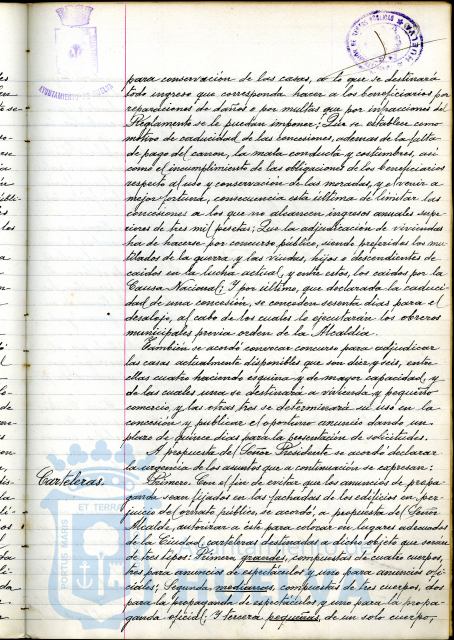 AYUNTAMIENTO DE HUELVA
HUELVA
para conservación de las casas, a lo que se destinará
todo ingreso que corresponda hacer a los beneficiarios por
reparaciones de daños o por multas que por infracciones del
Reglamento se le puedan imponer; Que se establece como
motivo de caducidad de las concesiones, ademas de la falta
de pago del canon, la mala conducta y costumbres, así
como el incumplimiento de las obligaciones de los beneficiarios
respecto al uso y conservación de las moradas, y el venir a
mejor fortuna, consecuencia esta última de limitar las
concesiones a los que no alcancen ingresos anuales supe-
riores de tres mil pesetas; Que la adjudicación de viviendas
ha de hacerse por concurso público, siendo preferidos los mu-
tilados de la guerra, y las viudas, hijos o descendientes de
caidos en la lucha actual, y entre estos, los caidos por la
Causa Nacional; Y por último, que declarada la caduci-
dad de una concesión, se conceden sesenta días para el
desalojo, al cabo de los cuales lo ejecutarán los obreros
municipales previa orden de la Alcaldía.
También se acordó convocar concurso para adjudicar
las casas actualmente disponibles que son diez y seis, entre
ellas cuatro haciendo esquina y de mayor capacidad, y
de las cuales una se destinará a vivienda y pequeño
comercio, y las otras tres se determinará su uso en la
concesión y publicar el oportuno anuncio dando un
plazo de quince días para la presentación de solicitudes.
A propuesta del Señor Presidente se acordó declarar
la urgencia de los asuntos que a continuación se expresan:
Carteleras.
Primero. Con el fin de evitar que los anuncios de propa-
ganda sean fijados en las fachadas de los edificios en per-
juicio del ornato público, se acordó, a propuesta del Señor
Alcalde, autorizar a éste para colocar en lugares adecuados
de la Ciudad, carteleras destinadas a dicho objeto que serán
de tres tipos: Primera, grandes, compuestas de cuatro cuerpos,
tres para anuncios de espectáculos y uno para anuncios ofi-
ciales; Segunda, medianas, compuestas de tres cuerpos, dos
para la propaganda de espectáculos, y uno para la propa-
ganda oficial; Y tercera, pequeñas, de un solo cuerpo,
PORTUS MARIS ET TERRÆ